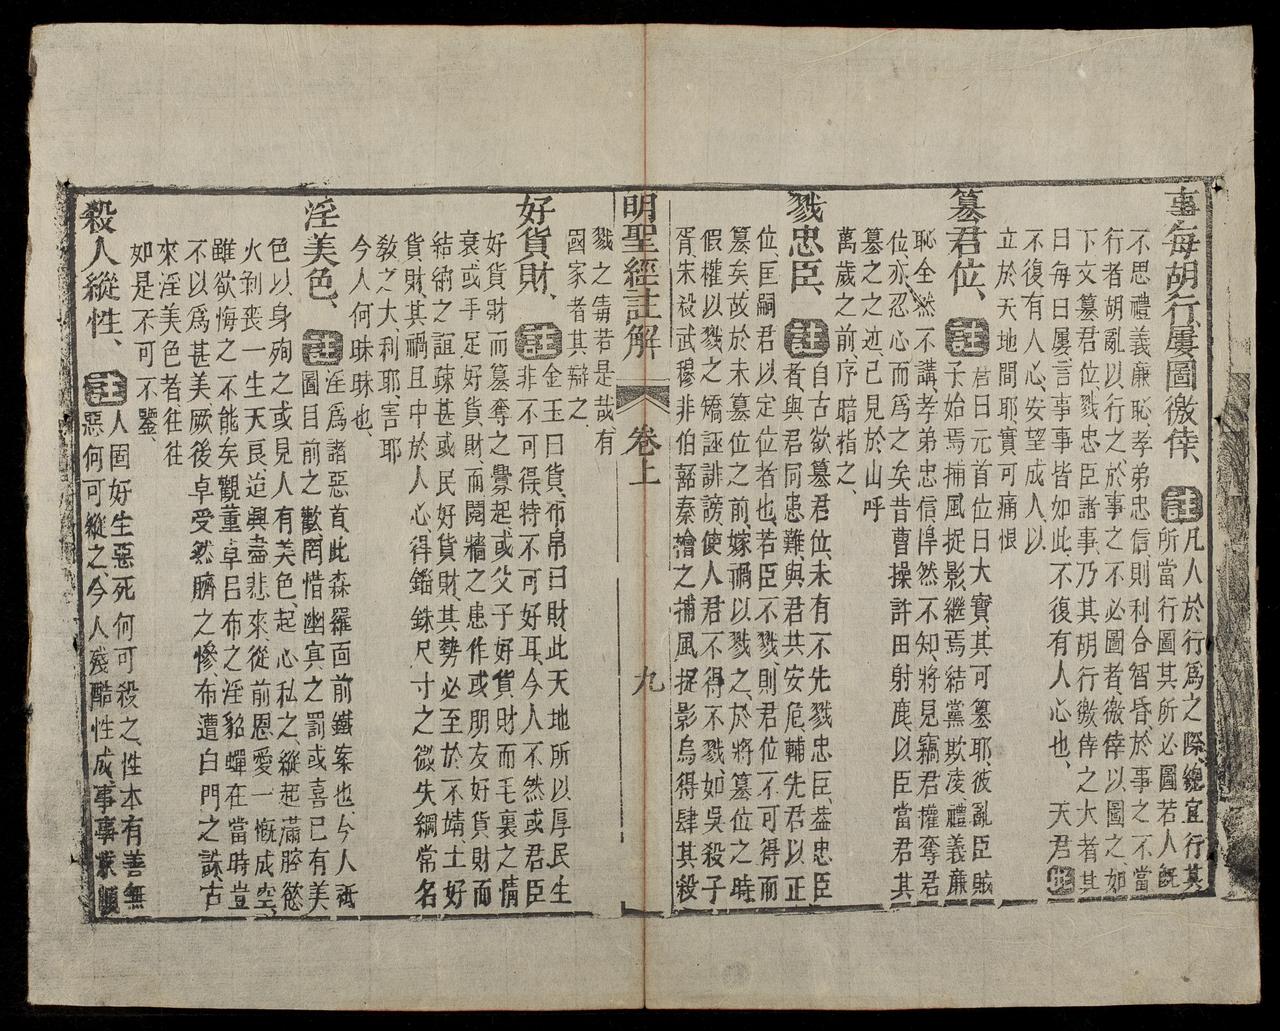 事每胡行、屢圖徼倖、註凡人於行爲之際、總宜行其
所當行圖其所必圖若人旣
不思禮義廉恥、孝弟忠信、則利合智昏、於事之不當
行者胡亂以行之、於事之不必圖者、徼倖以圖之、如
下文簒君位、戮忠臣諸事、乃其胡行徼倖之大者其
曰每曰屢、言事事皆如此、不復有人心也、天君
不復有人心、安望成人、以
立於天地間耶、實可痛恨
簒君位、註君曰元首位曰大寶其可簒耶、彼亂臣賊
子、始焉捕風捉影繼焉結黨欺凌禮義廉
恥、全然不講、孝弟忠信、悍然不知、將見竊君權、奪君
位、亦忍心而爲之矣、昔曹操許田射鹿、以臣當君、其
簒之之迹、已見於山呼
萬歲之前、序暗指之、
戮忠臣、註自古欲簒君位、未有不先戮忠臣、蓋忠臣
者、與君同患難、與君共安危、輔先君以正
位、匡嗣君以定位者也、若臣不戮、則君位不可得而
簒矣、故於未簒位之前、嫁禍以戮之、於將簒位之時、
假權以戮之、矯誣誹謗、使人君不得不戮、如吳殺子
胥、宋殺武穆、非伯嚭秦檜之捕風捉影、烏得肆其殺
明聖經註解 卷上 九
戮之毒若是哉、有
國家者其辯之
好貨財、註金玉曰貨、布帛曰財、此天地所以厚民生
非不可得、特不可好耳、今人不然、或君臣
好貨財而簒奪之釁起、或父子好貨財而毛裏之情
衰、或手足好貨財、而鬩牆之患作、或朋友好貨財而
結納之誼疎、甚或民好貨財、其勢必至於不靖、士好
貨財、其禍且中於人心、得錙銖尺寸之微、失綱常名
敎之大、利耶、害耶
今人何昧昧也、
淫美色、註淫爲諸惡首、此森羅面前鐵案也、今人祗
圖目前之歡、罔惜幽冥之罰、或喜已有美
色、以身殉之、或見人有美色、起心私之、縱起滿腔慾
火、剝喪一生天良、迨興盡悲來、從前恩愛一慨成空、
雖欲悔之、不能矣、觀董卓呂布之淫貂蟬、在當時豈
不以爲甚美、厥後卓受然臍之慘、布遭白門之誅、古
來淫美色者、往往
如是、不可不鑒、
殺人縱性、註人固好生惡死、何可殺之、性本有善無
惡、何可縱之、今人殘酷性成、事事